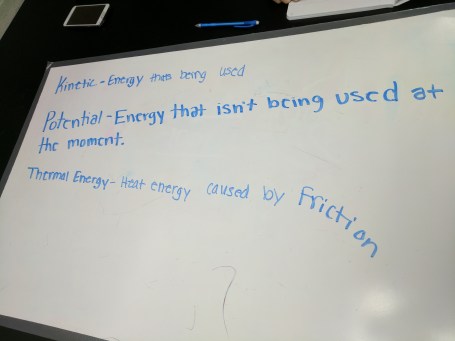 Kinetic - Energy thats being used
Potential - Energy that isn't being used at
the moment.
Thermal Energy - Heat energy caused by Friction